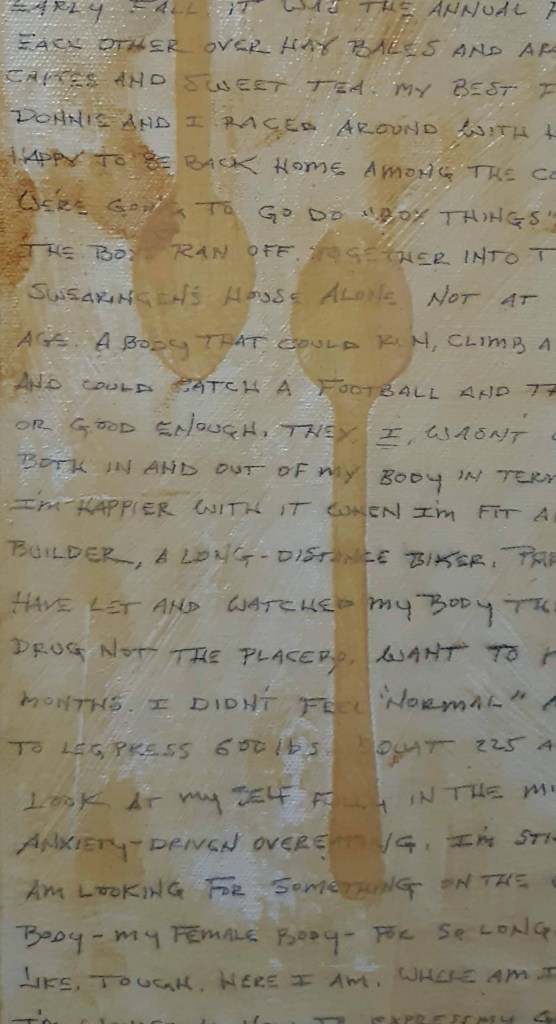 EARLY FALL. IT WAS THE ANNUAL
EACH OTHER OVER HAY BALES AND
CAKES AND SWEET TEA. MY BEST
DONNIE AND I RACED AROUND WITH
HAPPY TO BE BACK HOME AMONG THE
WE'RE GOING TO GO DO "BOY THINGS"
THE BOYS RAN OFF TOGETHER INTO
SWEARINGEN'S HOUSE ALONE NOT AT
AGE. A BODY THAT COULD RUN, CLIMB A
AND COULD CATCH A FOOTBALL AND
OR GOOD ENOUGH. THEY, I, WASN'T
BOTH IN AND OUT OF MY BODY IN
I'M HAPPIER WITH IT WHEN I'M FIT
BUILDER, A LONG-DISTANCE BIKER,
HAVE LET AND WATCHED MY BODY
DRUG NOT THE PLACEBO. WANT TO
MONTHS. I DIDN'T FEEL "NORMAL"
TO LEGPRESS 600 lbs. SQUAT 225
LOOK AT MY SELF FULLY IN THE
ANXIETY-DRIVEN OVEREATING. I'M
AM LOOKING FOR SOMETHING ON THE
BODY - MY FEMALE BODY - FOR SO LONG
LIKE, TOUGH. HERE I AM. WHERE AM I
TO EXPRESS MY